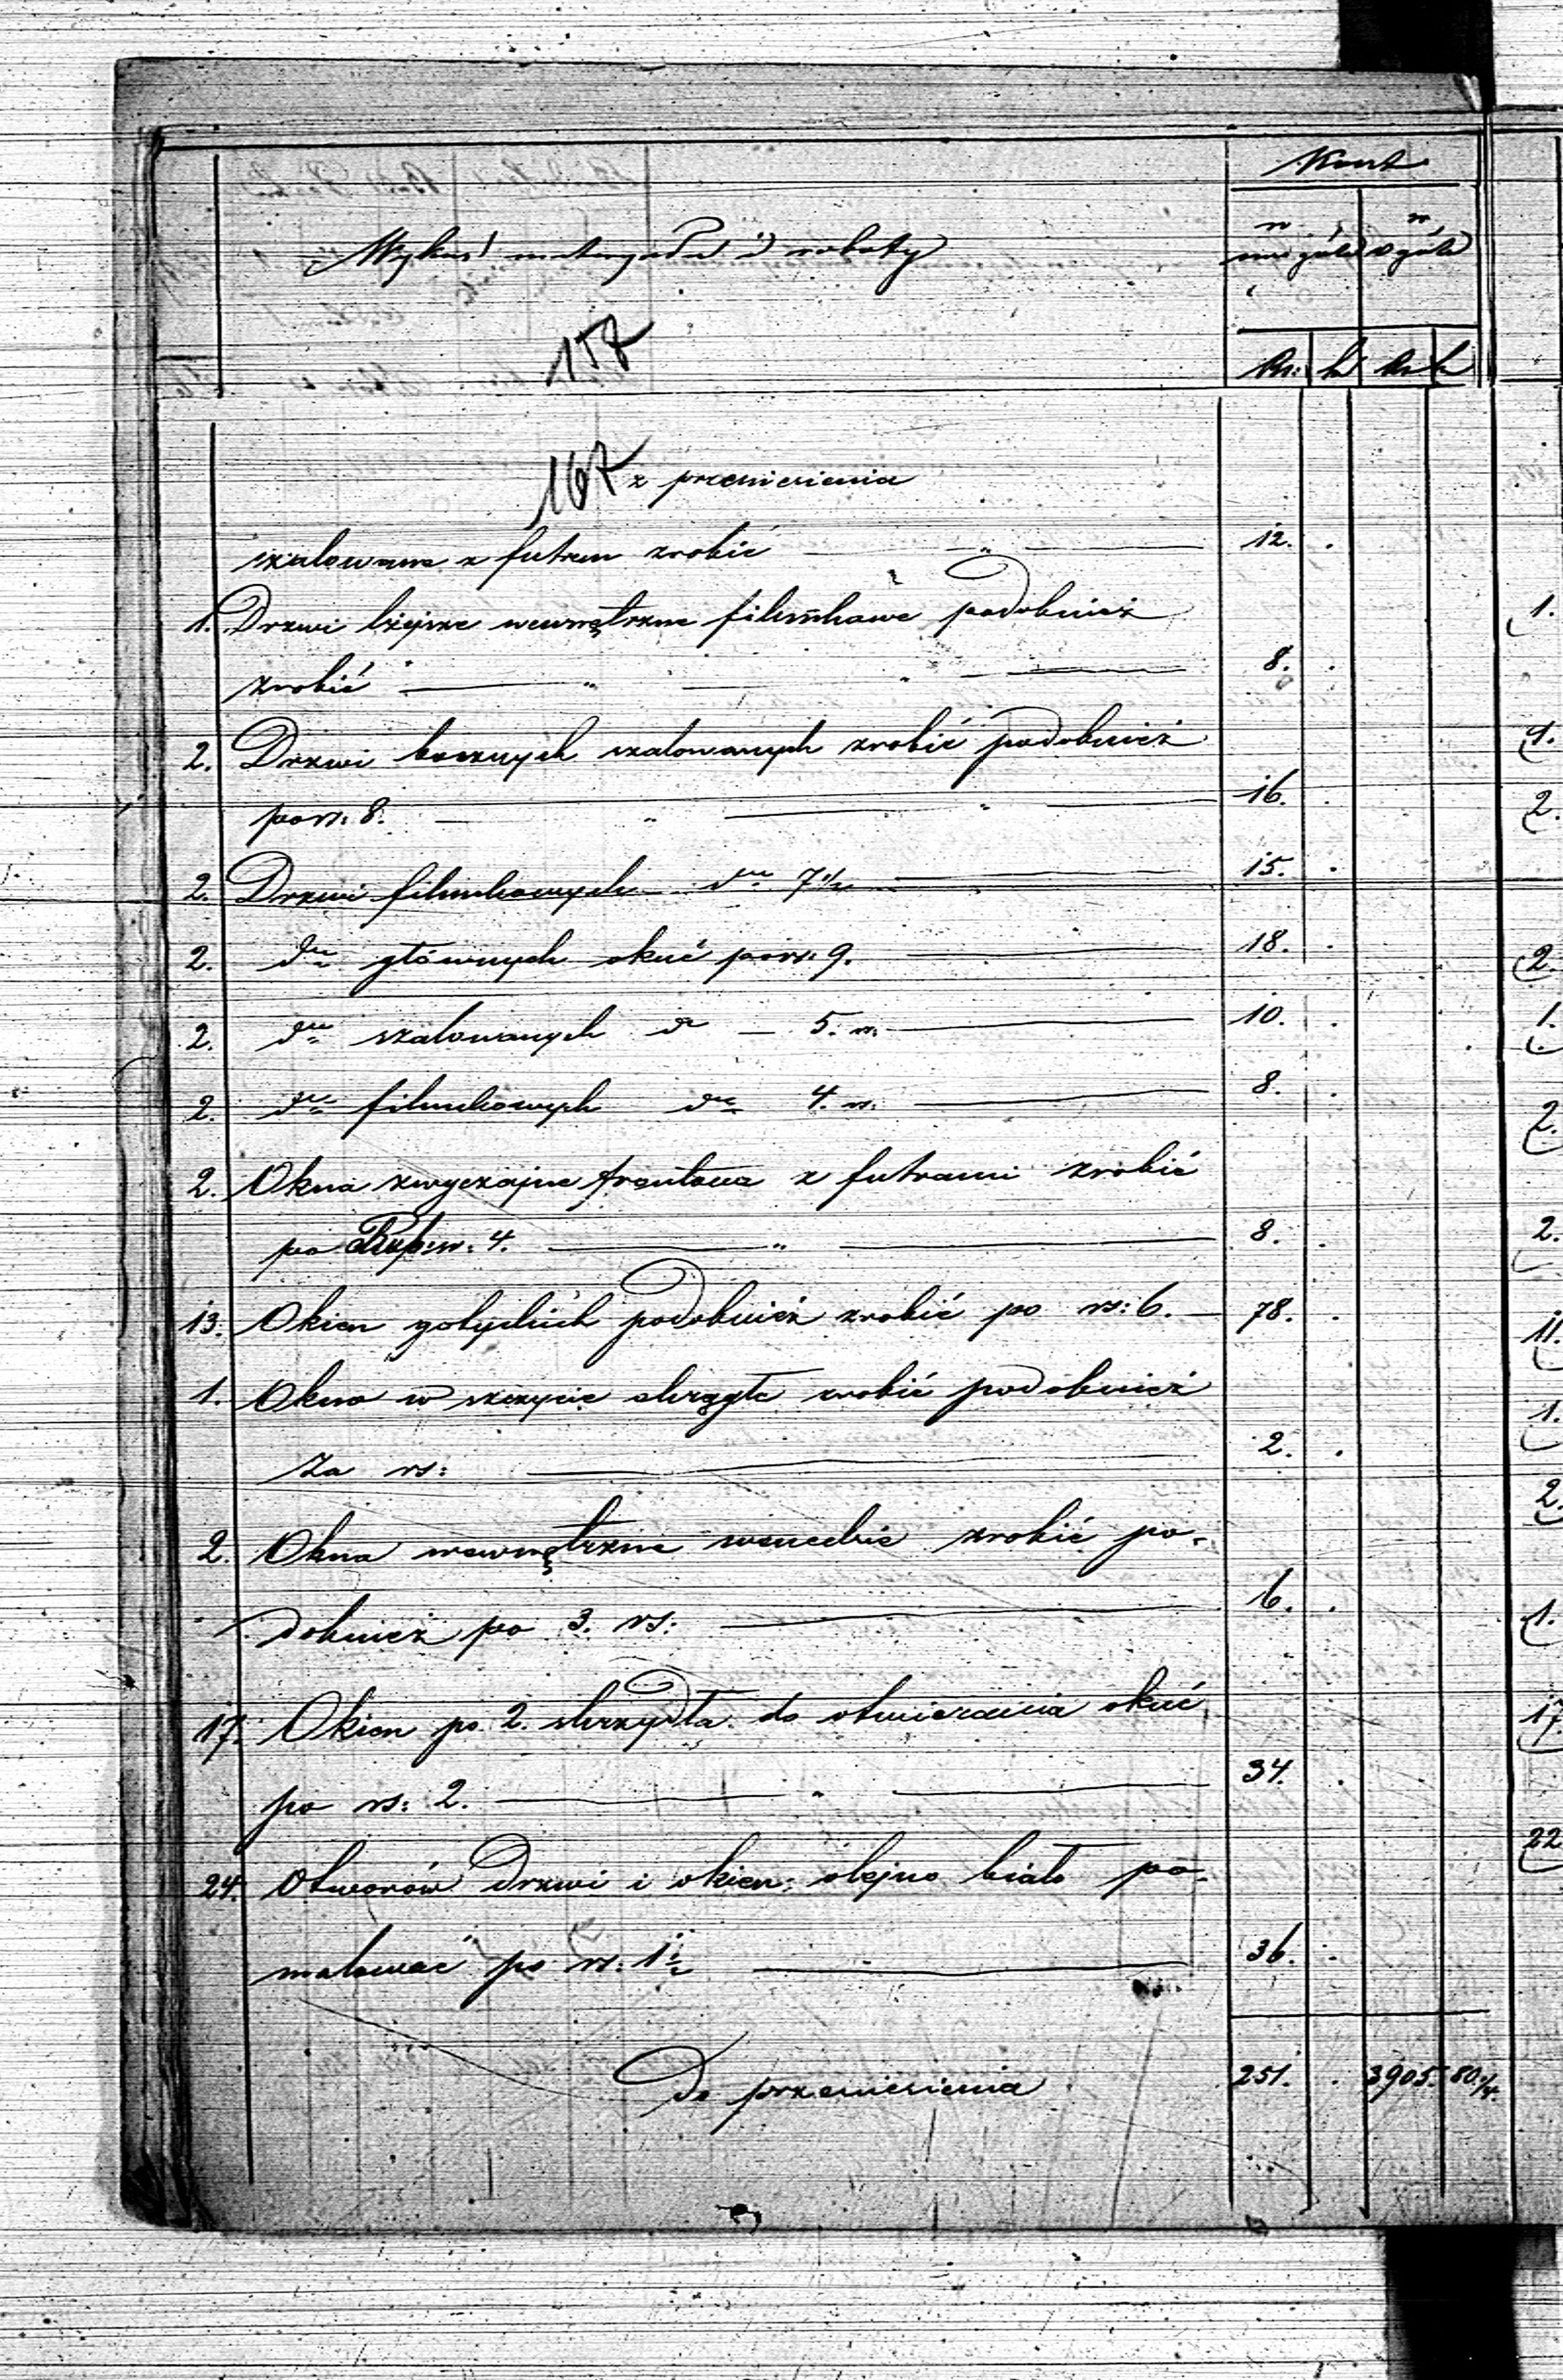 Koszt
Wykaz materyału i roboty
w szczególe w ogóle
157
Rs: k Rs k
167 z przeniesienia
szalowane z futrem zrobić — „ — 12. .
1. Drzwi lżejsze wewnętrzne filunkowe podobnież
zrobić — „ — „ — 8. .
2. Drzwi bocznych szalowanych zrobić podobnież
po rs: 8. — „ — „ — 16. .
2. Drzwi filunkowych dto 7 1/2 — 15. .
2. dto głównych okuć po rs: 9. — 18. .
2. dto szalowanych dto — 5. rs. — 10. .
2. dto filunkowych dto 4. rs. — 8. .
2. Okna zwyczajne frontowe z futrami zrobić
po 4. — „ — 8. .
13. Okien gotyckich podobnież zrobić po rs: 6. — 78. .
1. Okno w szczycie okrągłe zrobić podobnież
za rs: — 2. .
2. Okna wewnętrzne weneckie zrobić po-
dobnież po 3. rs: — 6. .
17. Okien po 2. skrzydła do otwierania okuć
po rs: 2. — „ — 34. .
24. Otworów drzwi i okien olejno biało po-
malować po rs: 1 1/2 — 36. .
Do przeniesienia 251. . 3905. 80 3/4.
1.
1.
2.
2.
1.
2.
2.
11.
1.
2.
1.
17.
22